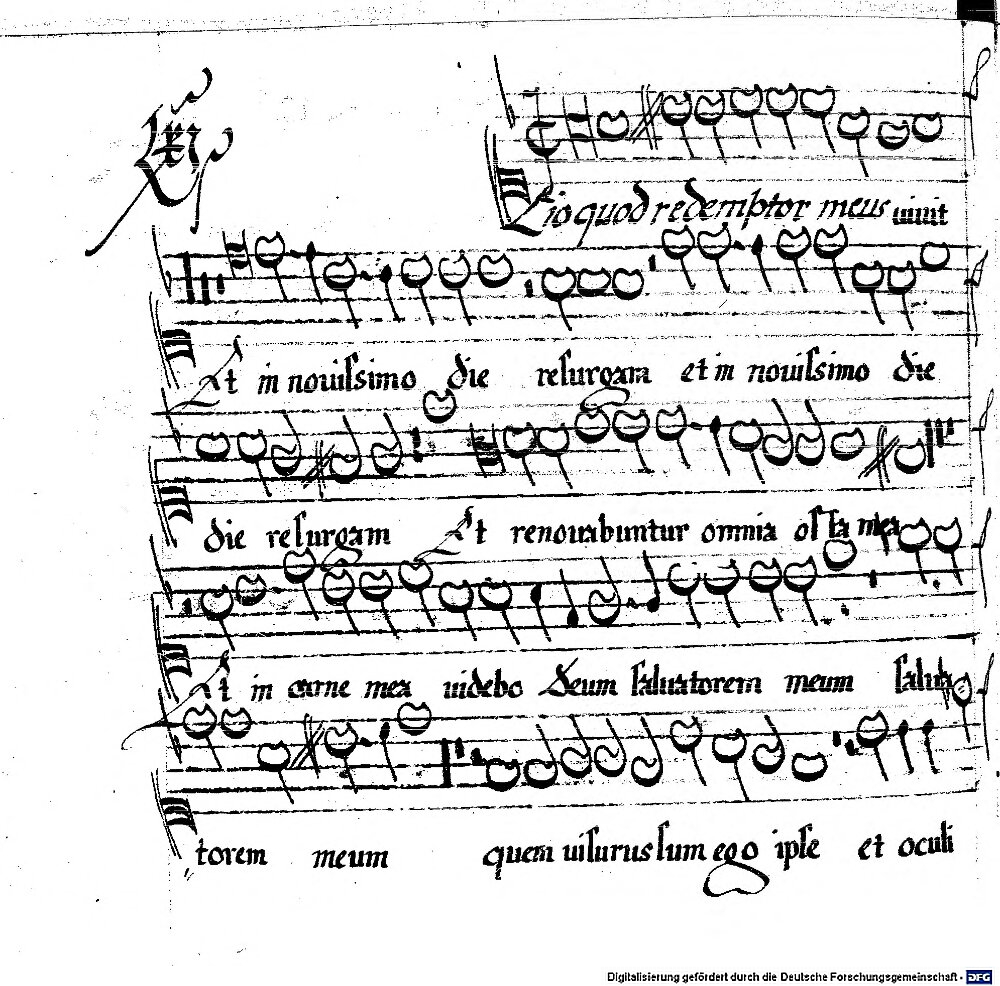 Lxij
Cio quod redemptor meus uiuit
Et in nouissimo die resurgam et in nouissimo die
die resurgam Et renouabuntur omnia ossa mea
Et in carne mea uidebo Deum saluatorem meum salua
torem meum quem uisurus sum ego ipse et oculi
Digitalisierung gefördert durch die Deutsche Forschungsgemeinschaft - DFG